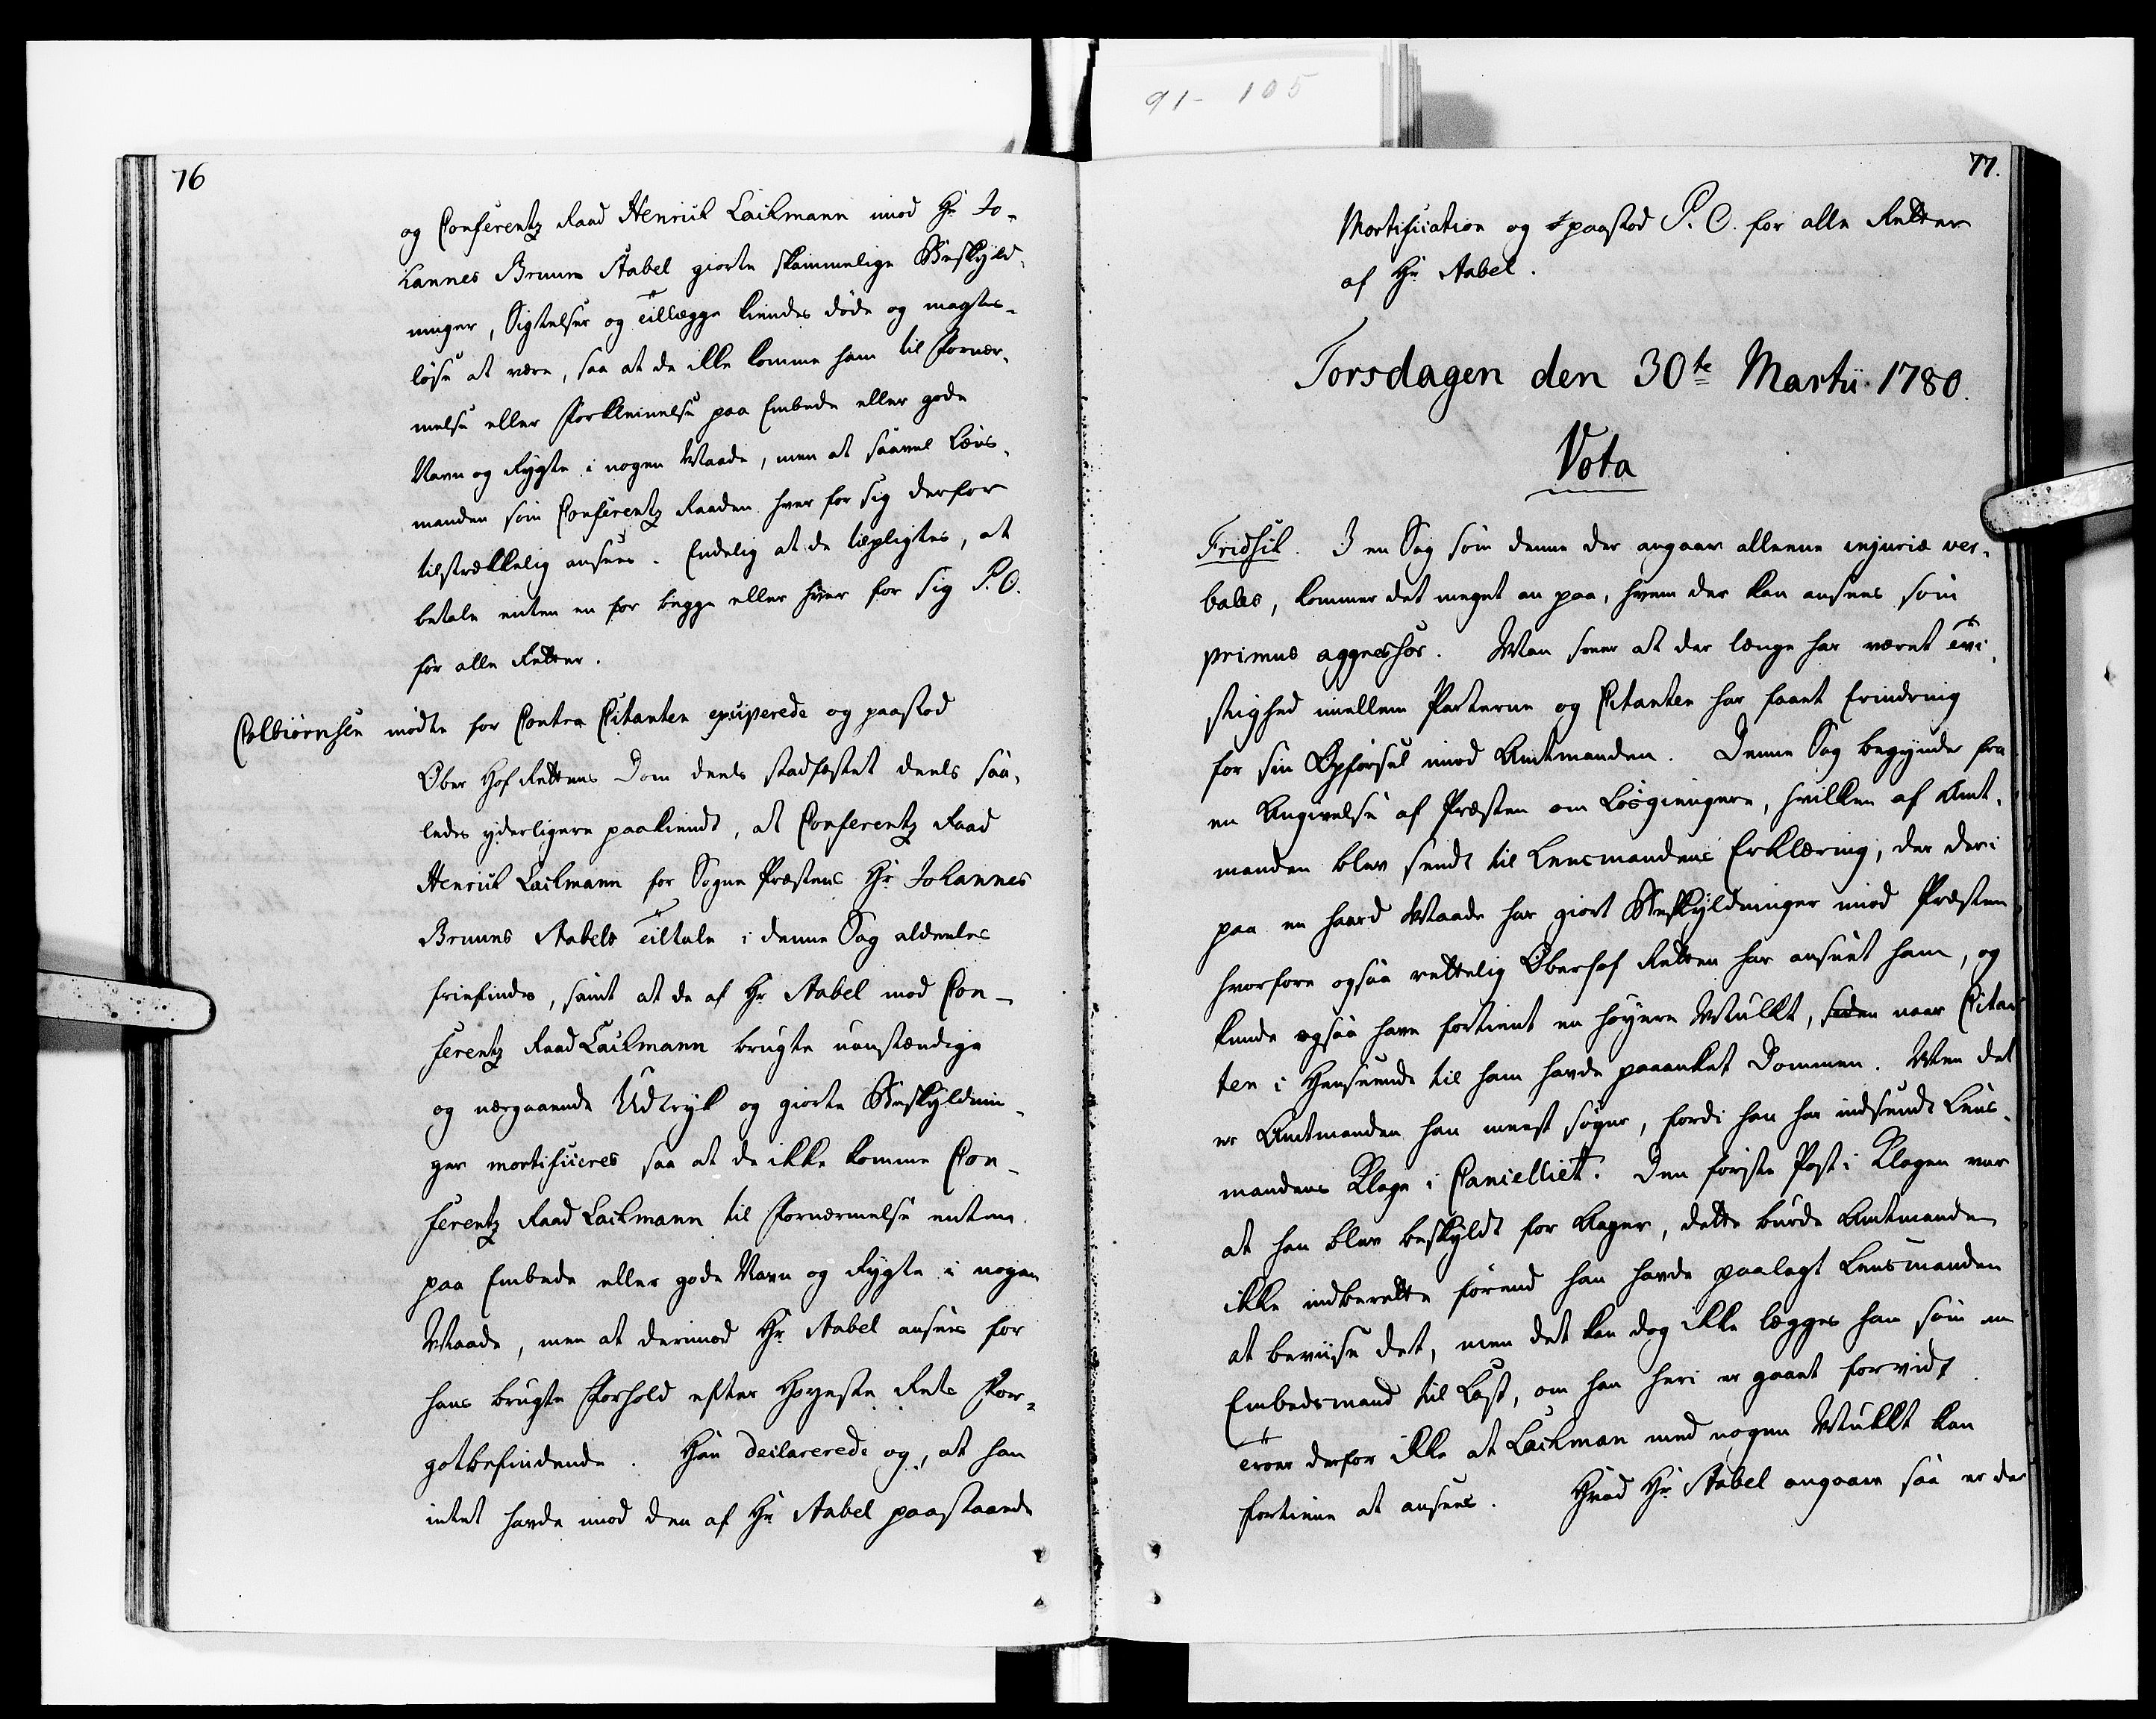 91-105
76
og Conferentz Raad Henrick Lachmann imod Hr Jo-
hannes Bruun Aabel giorte skammelige Beskyld-
ninger, Sigtelser og Tillægge kiendes døde og magtes-
løse at være, saa at de ikke komme ham til Fornær-
melse eller Forkleinelse paa Embede eller gode
Navn og Rygte i nogen Maade, men at saavel Lens-
manden som Conferentz Raaden hver for sig derfor
tilstrækkelig ansees. Endelig at de tilpligtes, at
betale enten en for begge eller hver for sig P. O.
for alle Retter.
Colbiørnsen mødte for Contra Citanten exciperede og paastod
Ober Hof Rettens Dom deels stadfæstet deels saa-
ledes yderligere paakiendt, at Conferentz Raad
Henrich Lachmann for Sogne Præstens Hr Johannes
Bruuns Aabels Tiltale i denne Sag aldeeles
friefindes, samt at de af Hr Aabel mod Con-
ferentz Raad Lachmann brugte uanstændige
og nærgaaende Udtryk og giorte Beskyldnin-
ger mortificeres saa at de ikke komme Con-
ferentz Raad Lachmann til Fornærmelse enten
paa Embede eller gode Navn og Rygte i nogen
Maade, men at derimod Hr Aabel ansees for
hans brugte Forhold efter Høyeste Rets For-
gotbefindende. Han declarerede og, at han
intet havde imod den af Hr Aabel paastaaende
77.
Mortification og paastod P. O. for alle Retter
af Hr Aabel.
Torsdagen den 30te Martii 1780.
Vota
Fridsch. I en Sag som denne der angaaer alleene injuriæ ver-
bales, kommer det meget an paa, hvem der kan ansees som
primus aggressor. Man seer at der længe har været Tvi-
stighed imellem Parterne og Citanten har faaet Erindring
for sin Opførsel imod Amtmanden. Denne Sag begynder fra
en Angivelse af Præsten om Løsgiengere, hvilken af Amt-
manden blev sendt til Lensmandens Erklæring, der deri
paa en haard Maade har giort Beskyldninger imod Præsten
hvorfore ogsaa rettelig Oberhof Retten har anseet ham, og
kunde ogsaa have fortient en høyere Mulkt, naar Citan
ten i Henseende til ham havde paaanket Dommen. Men det
er Amtmanden han meest søger, fordi han har indsendt Lens-
mandens Klage i Cancelliet. Den første Post i Klagen var
at han blev beskyldt for Aager, dette burde Amtmanden
ikke indberette førend han havde paalagt Lensmanden
at beviise det, men det kan dog ikke lægges ham som en
Embedsmand til Last, om han heri er gaaet forvidt.
Troer derfor ikke at Lachman med nogen Mulkt kan
fortiene at ansees. Hvad Hr Aabel angaaer saa er der